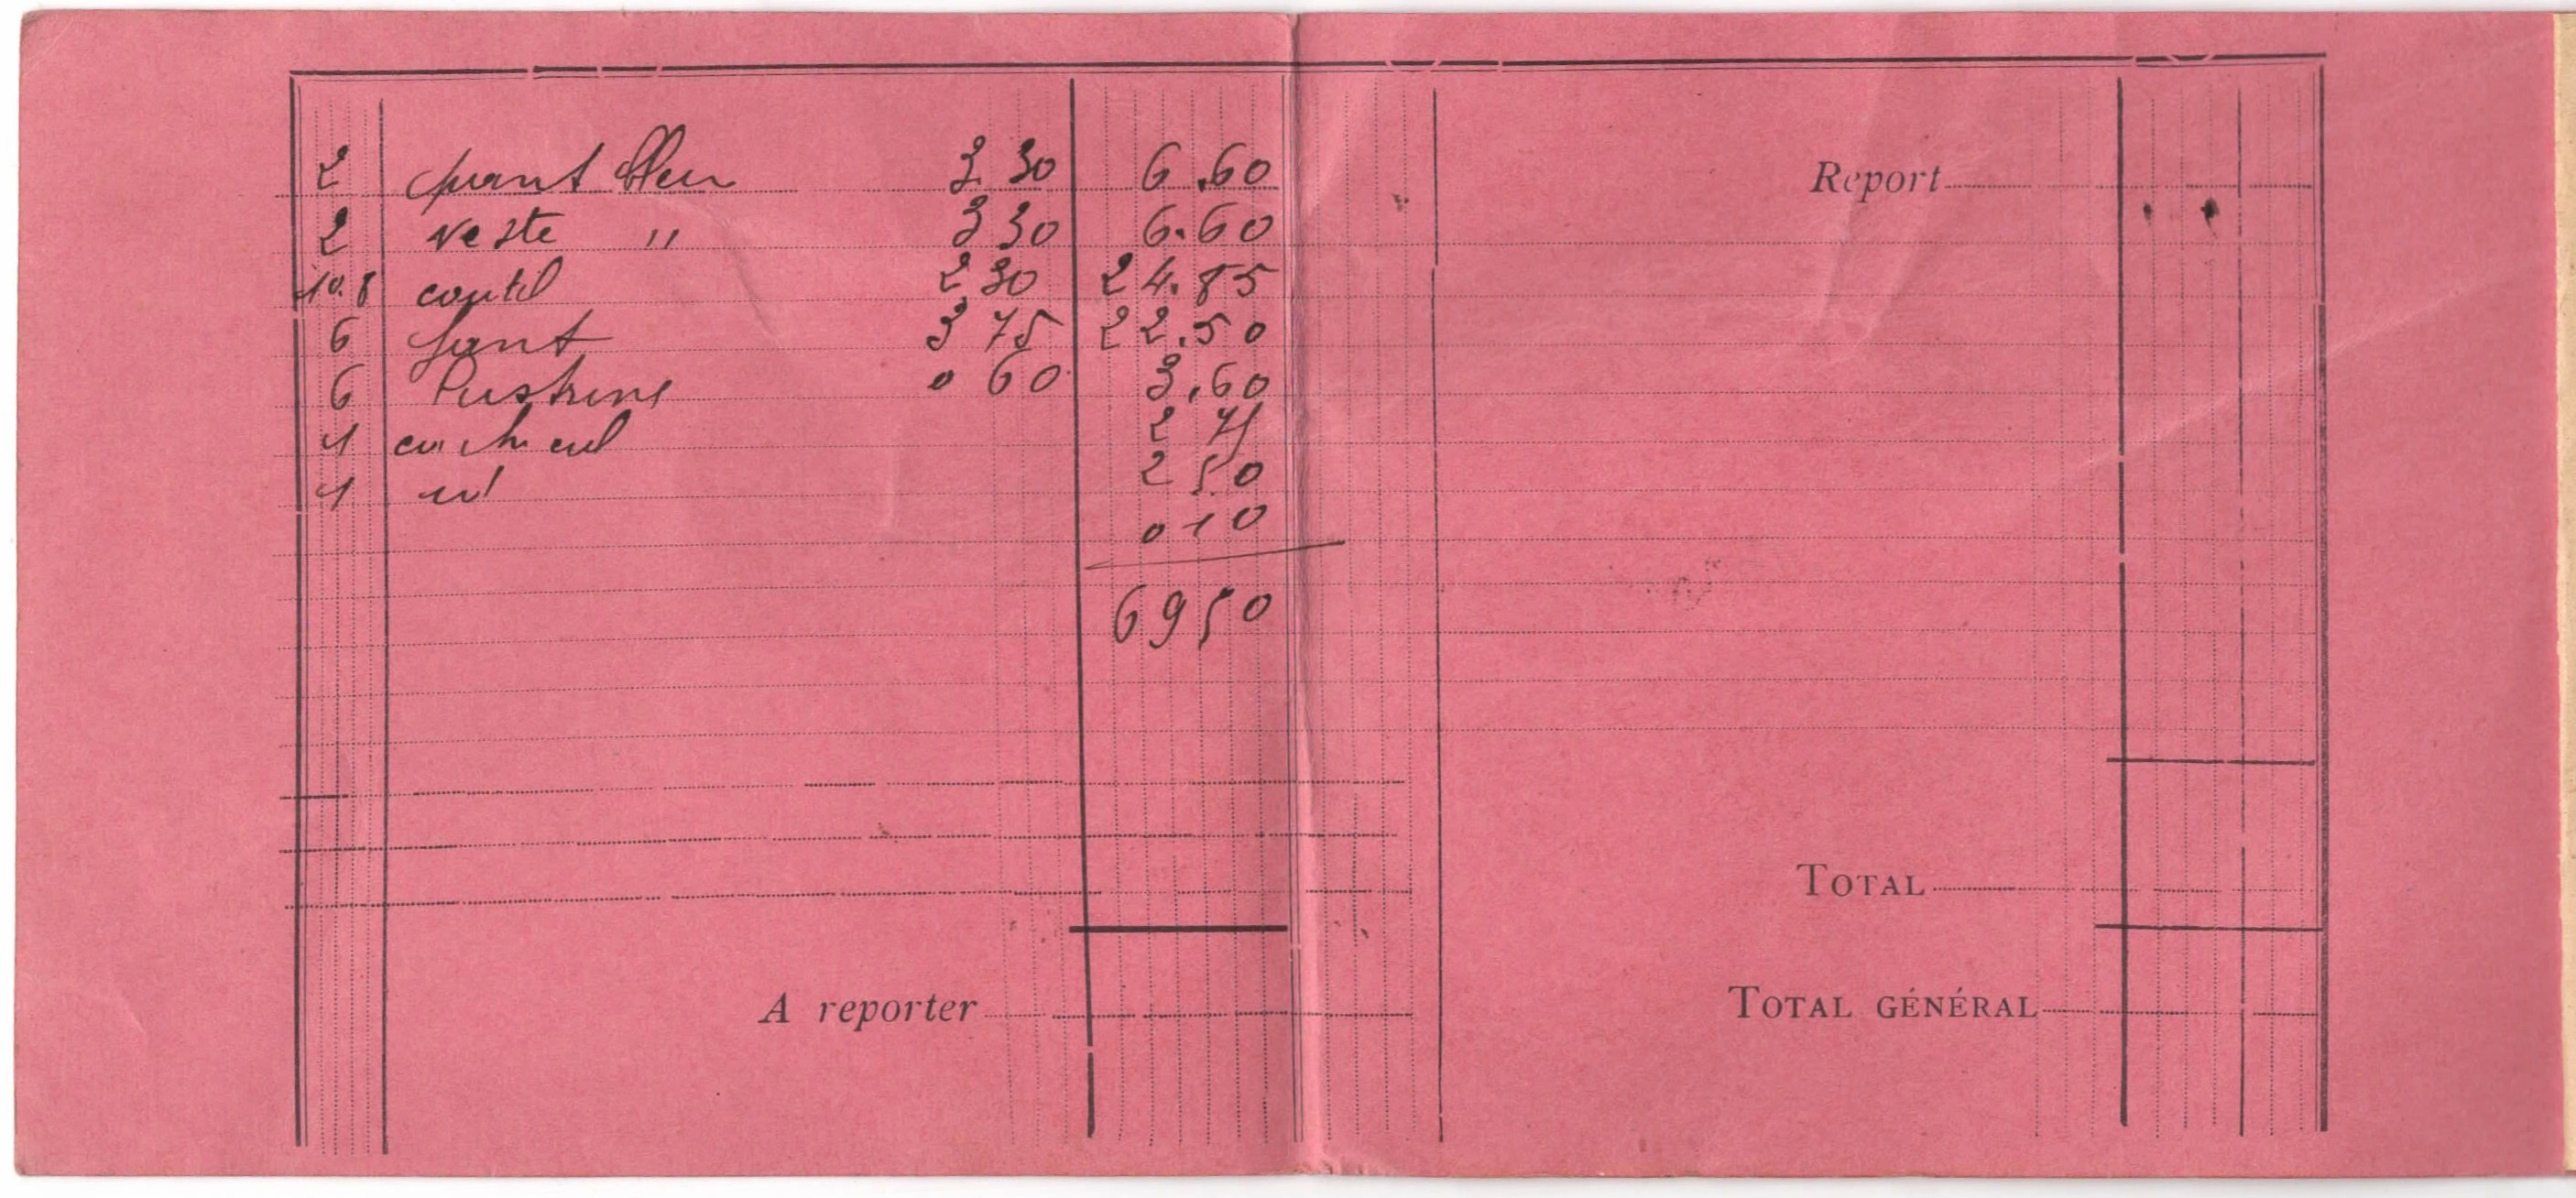 2 pant bleu 3 30 6.60
2 veste " 3 30 6.60
10.8 coutil 2 30 24.85
6 3 75 22.50
6 Lustrine 0 60 3.60
1 2 75
1 id 2 50
0 10
69 50
A reporter
Report
TOTAL
TOTAL GÉNÉRAL